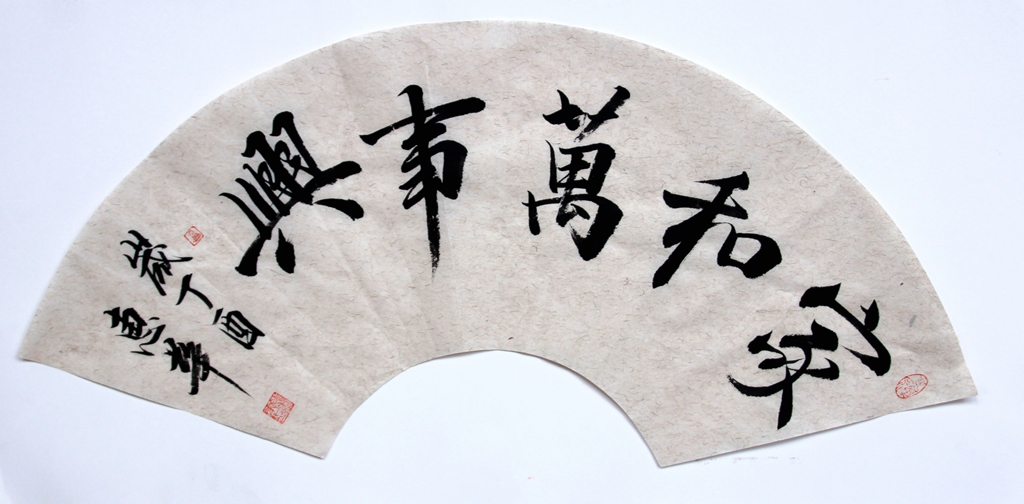 家和萬事興
歲丁酉
惠